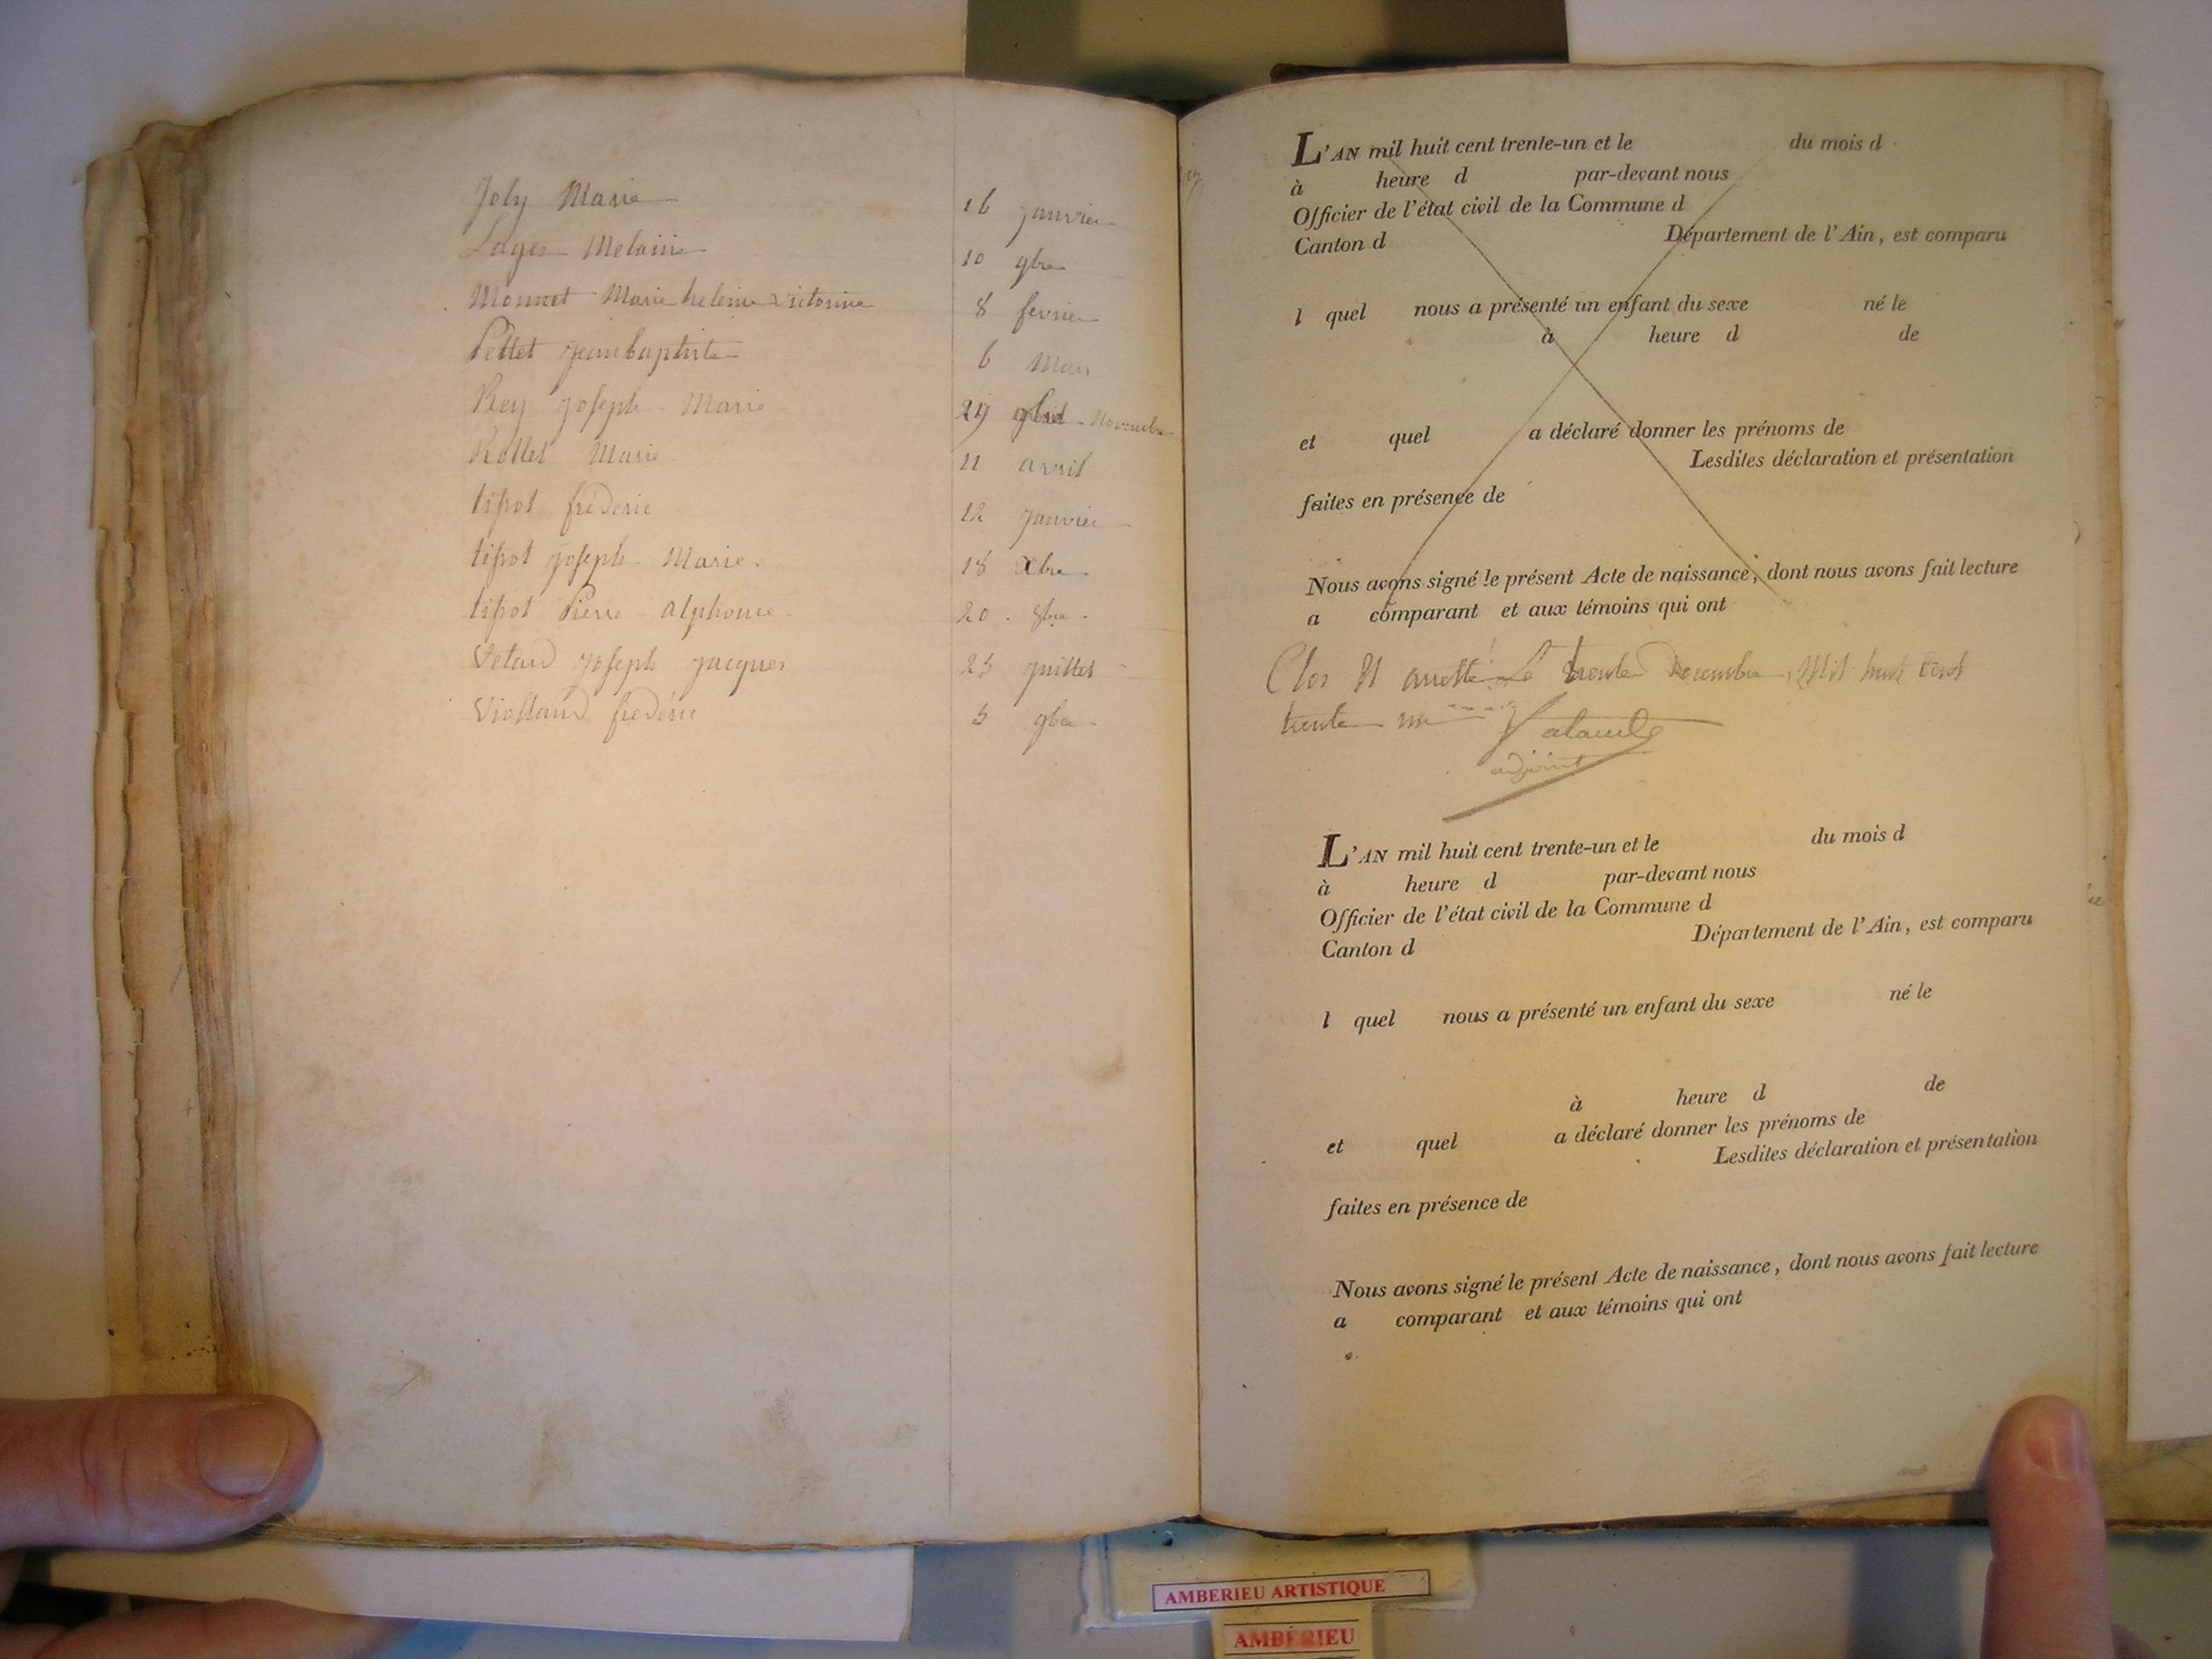 Joly Marie 16 janvier
Lager Melanie 10 9bre
Monnet Marie helene victorine 8 fevrier
Pettet jean baptiste 6 Mars
Rey joseph Marie 29 Novembre
Rollet Marie 11 avril
tissot frederic 12 janvier
tissot joseph Marie. 18 Xbre
tissot Pierre alphonce 20. 8bre.
joseph jacques 25 juillet
Violland frederic 5 9bre
L'AN mil huit cent trente-un et le du mois d
à heure d par-devant nous
Officier de l'état civil de la Commune d
Canton d Département de l'Ain, est comparu
l quel nous a présenté un enfant du sexe né le
à heure d de
et quel a déclaré donner les prénoms de
Lesdites déclaration et présentation
faites en présence de
Nous avons signé le présent Acte de naissance, dont nous avons fait lecture
a comparant et aux témoins qui ont
Clos Et arretté Le trente Decembre, Mil huit cent
trente un
adjoint
L'AN mil huit cent trente-un et le du mois d
à heure d par-devant nous
Officier de l'état civil de la Commune d
Canton d Département de l'Ain, est comparu
l quel nous a présenté un enfant du sexe né le
à heure d de
et quel a déclaré donner les prénoms de
Lesdites déclaration et présentation
faites en présence de
Nous avons signé le présent Acte de naissance, dont nous avons fait lecture
a comparant et aux témoins qui ont
AMBERIEU ARTISTIQUE
AMBÉRIEU